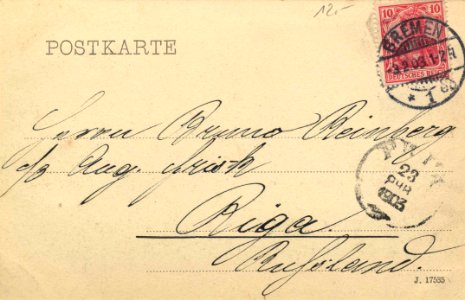 12.-
POSTKARTE
10 10
DEUTSCHES REICH
BREMEN
1
Herrn Bruno Reinberg
Aug. Frisch
Riga.
Rußland.
23
1903
J. 17535